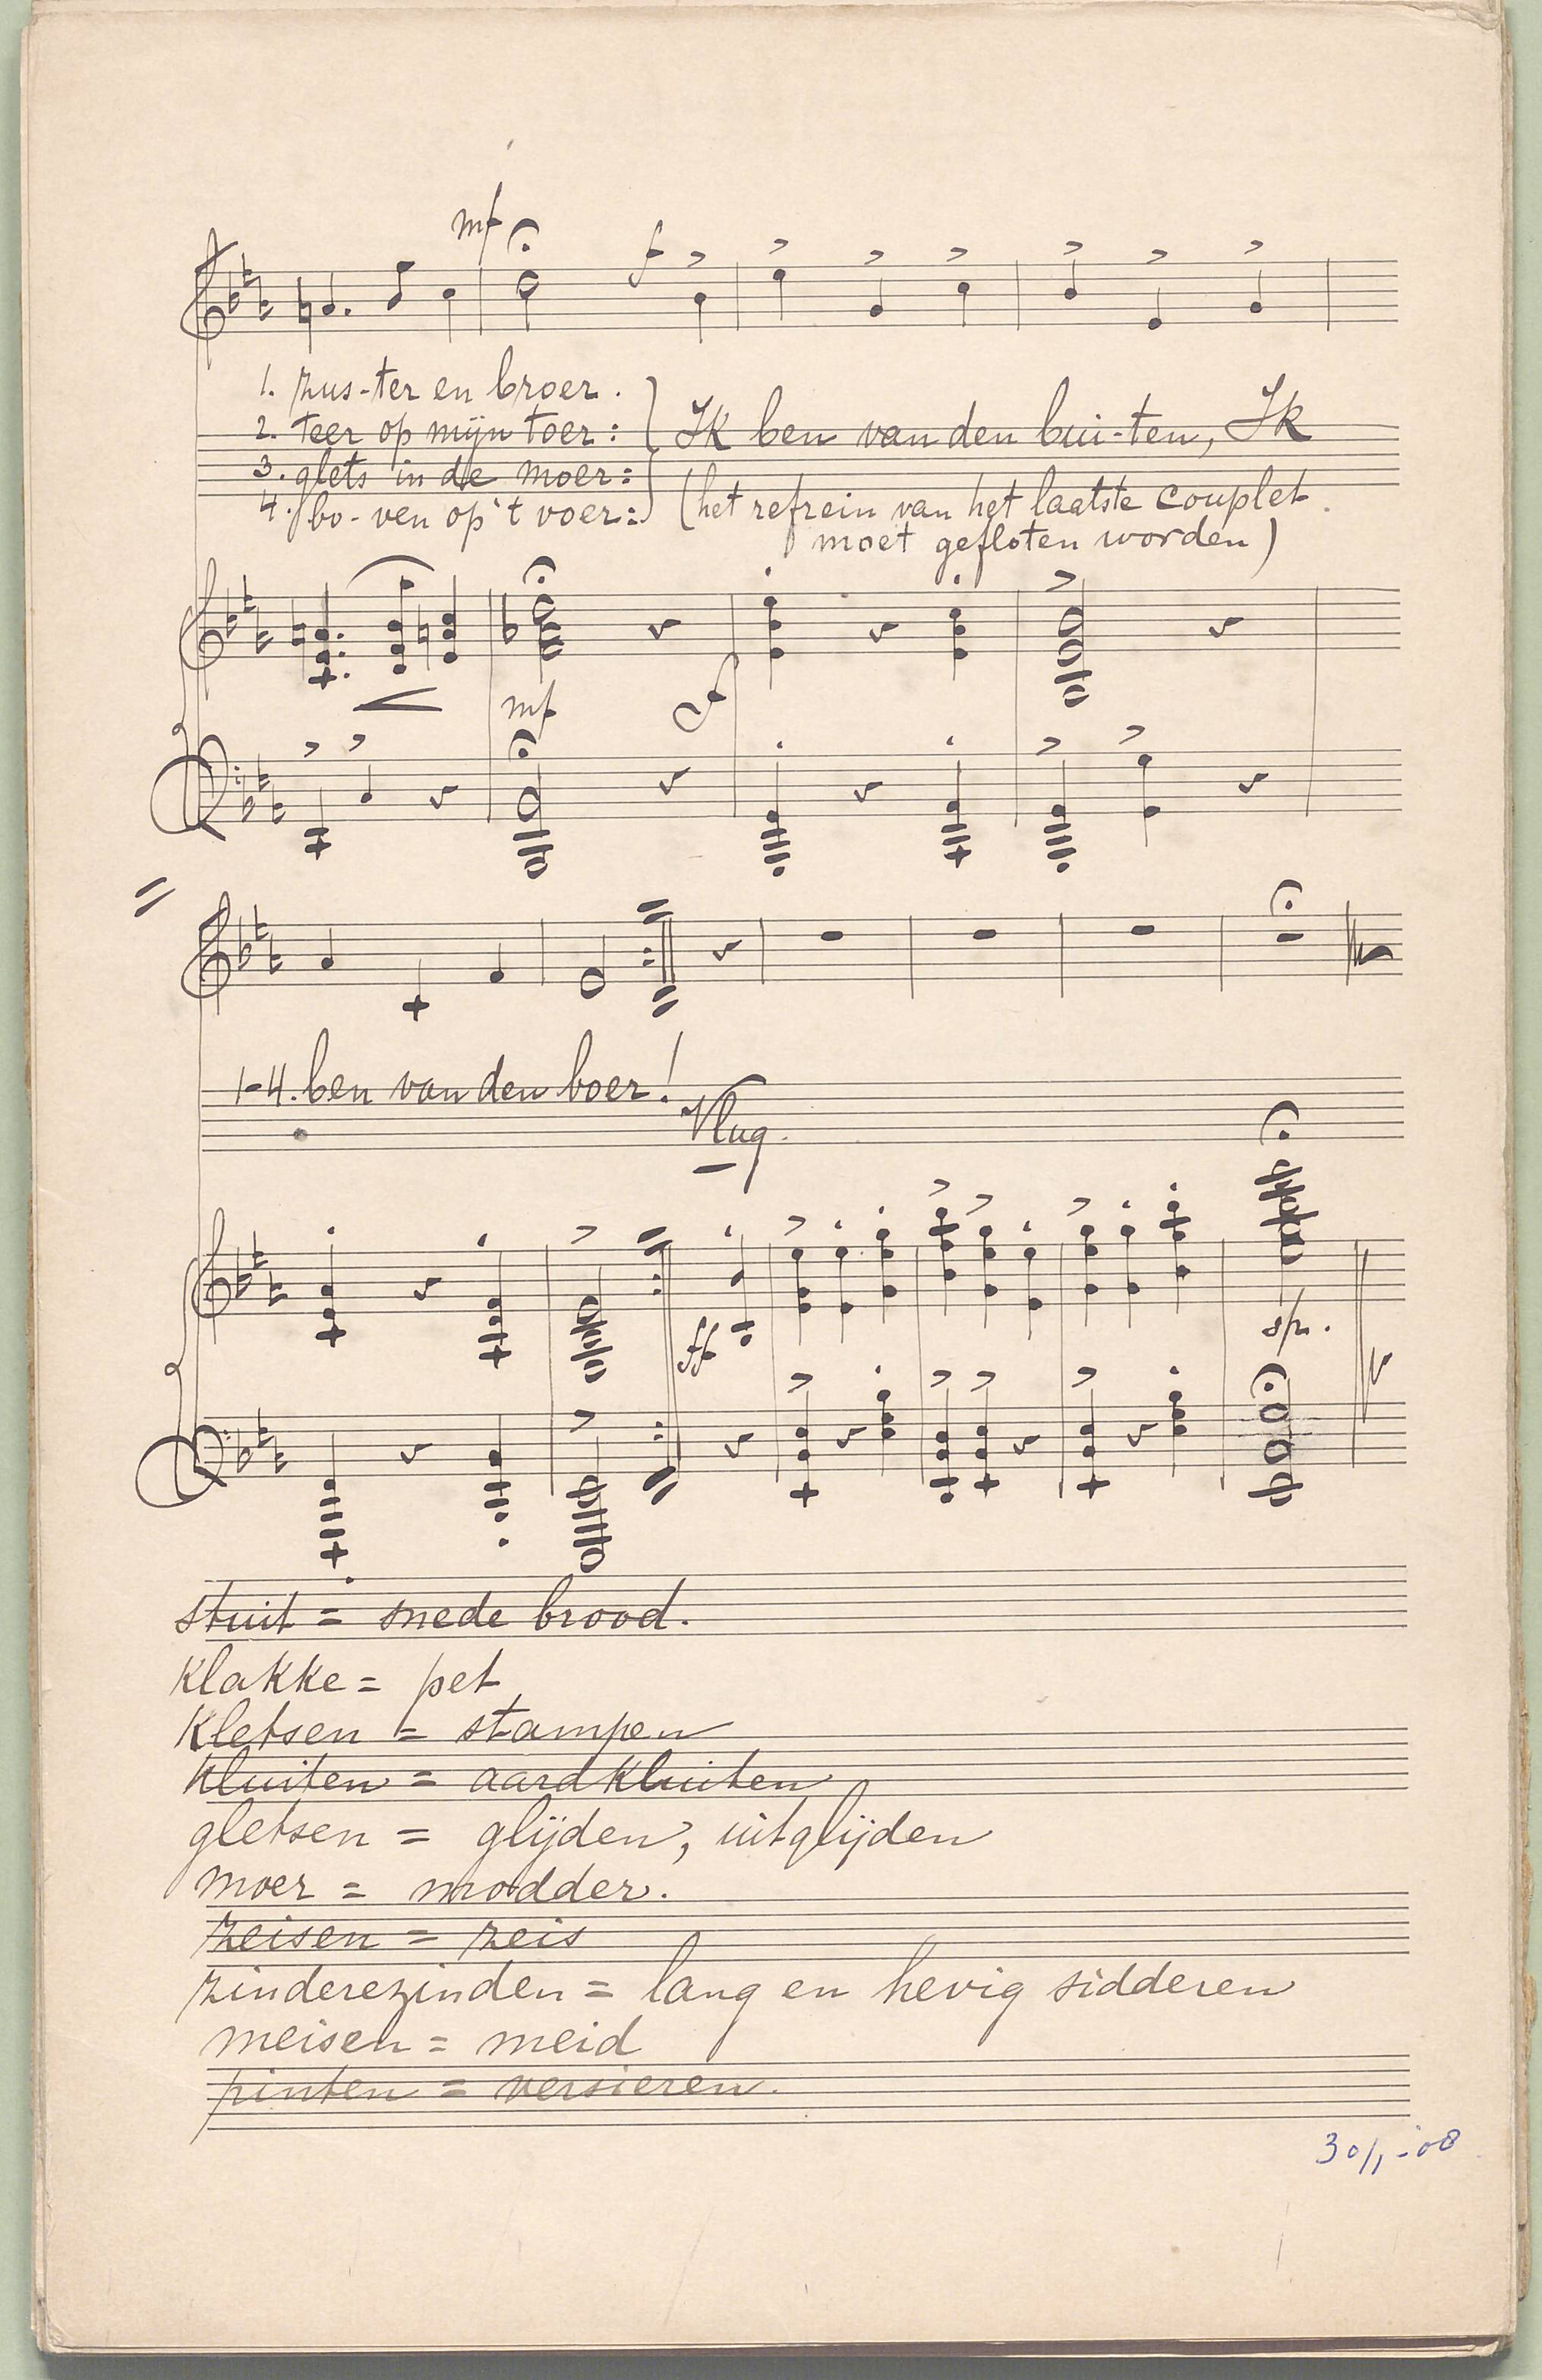 mf f
1. zus-ter en broer.
2. teer op mijn toer: Ik ben van den bui-ten, Ik
3. glets in de moer:
4. bo-ven op 't voer: (het refrein van het laatste couplet
moet gefloten worden)
mf f
1-4. ben van den boer!
Vlug.
ff
stuit = snede brood.
klakke = pet
kletsen = stampen
kluiten = aardkluiten
gletsen = glijden, uitglijden
moer = modder.
zeisen = zeis
zinderezinden = lang en hevig sidderen
meisen = meid
pinten = versieren.
30/1-08